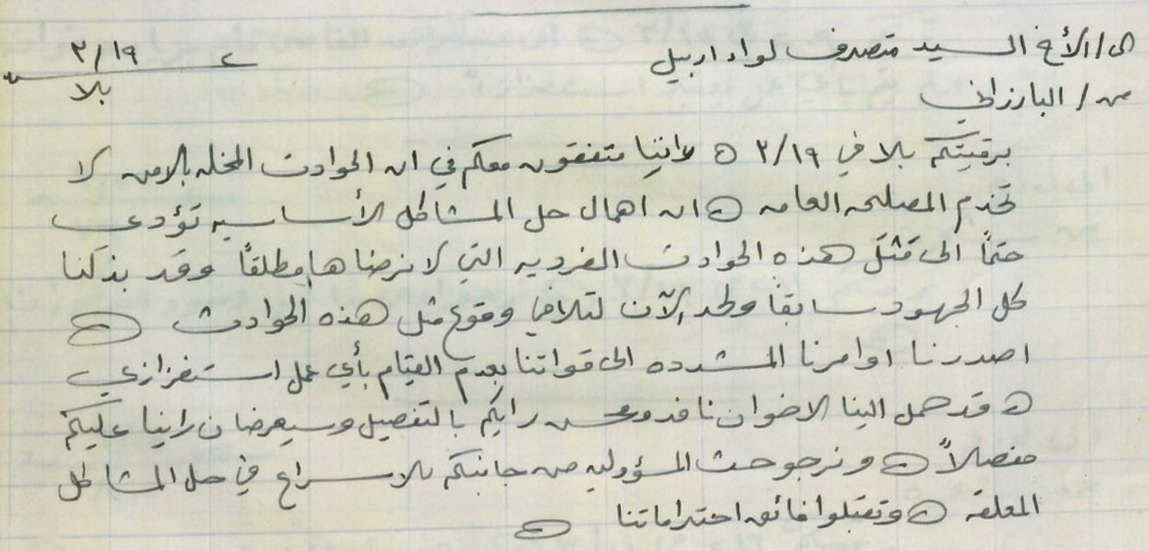 الى / الأخ السيد متصرف لواء اربيل ٣/١٩
من / البارزاني بلا
برقيتكم بلا في ٣/١٩ ه اننا متفقون معكم في ان الحوادث المخله بالامن لا
تخدم المصلحه العامه ه ان اهمال حل المشاكل الأساسيه تؤدي
حتماً الى مثل هذه الحوادث الفرديه التي لا نرضاها مطلقاً وقد بذلنا
كل الجهود سابقاً ولحد الآن لتلافي وقوع مثل هذه الحوادث ه
اصدرنا اوامرنا المشدده الى قواتنا بعدم القيام بأي عمل استفزازي
ه قد حمل الينا الاخوان نافذ و رايكم بالتفصيل وسيعرضان راينا عليكم
مفصلاً ه ونرجو حث المسؤولين من جانبكم بالاسراع في حل المشاكل
المعلقه ه وتقبلوا فائق احتراماتنا ه